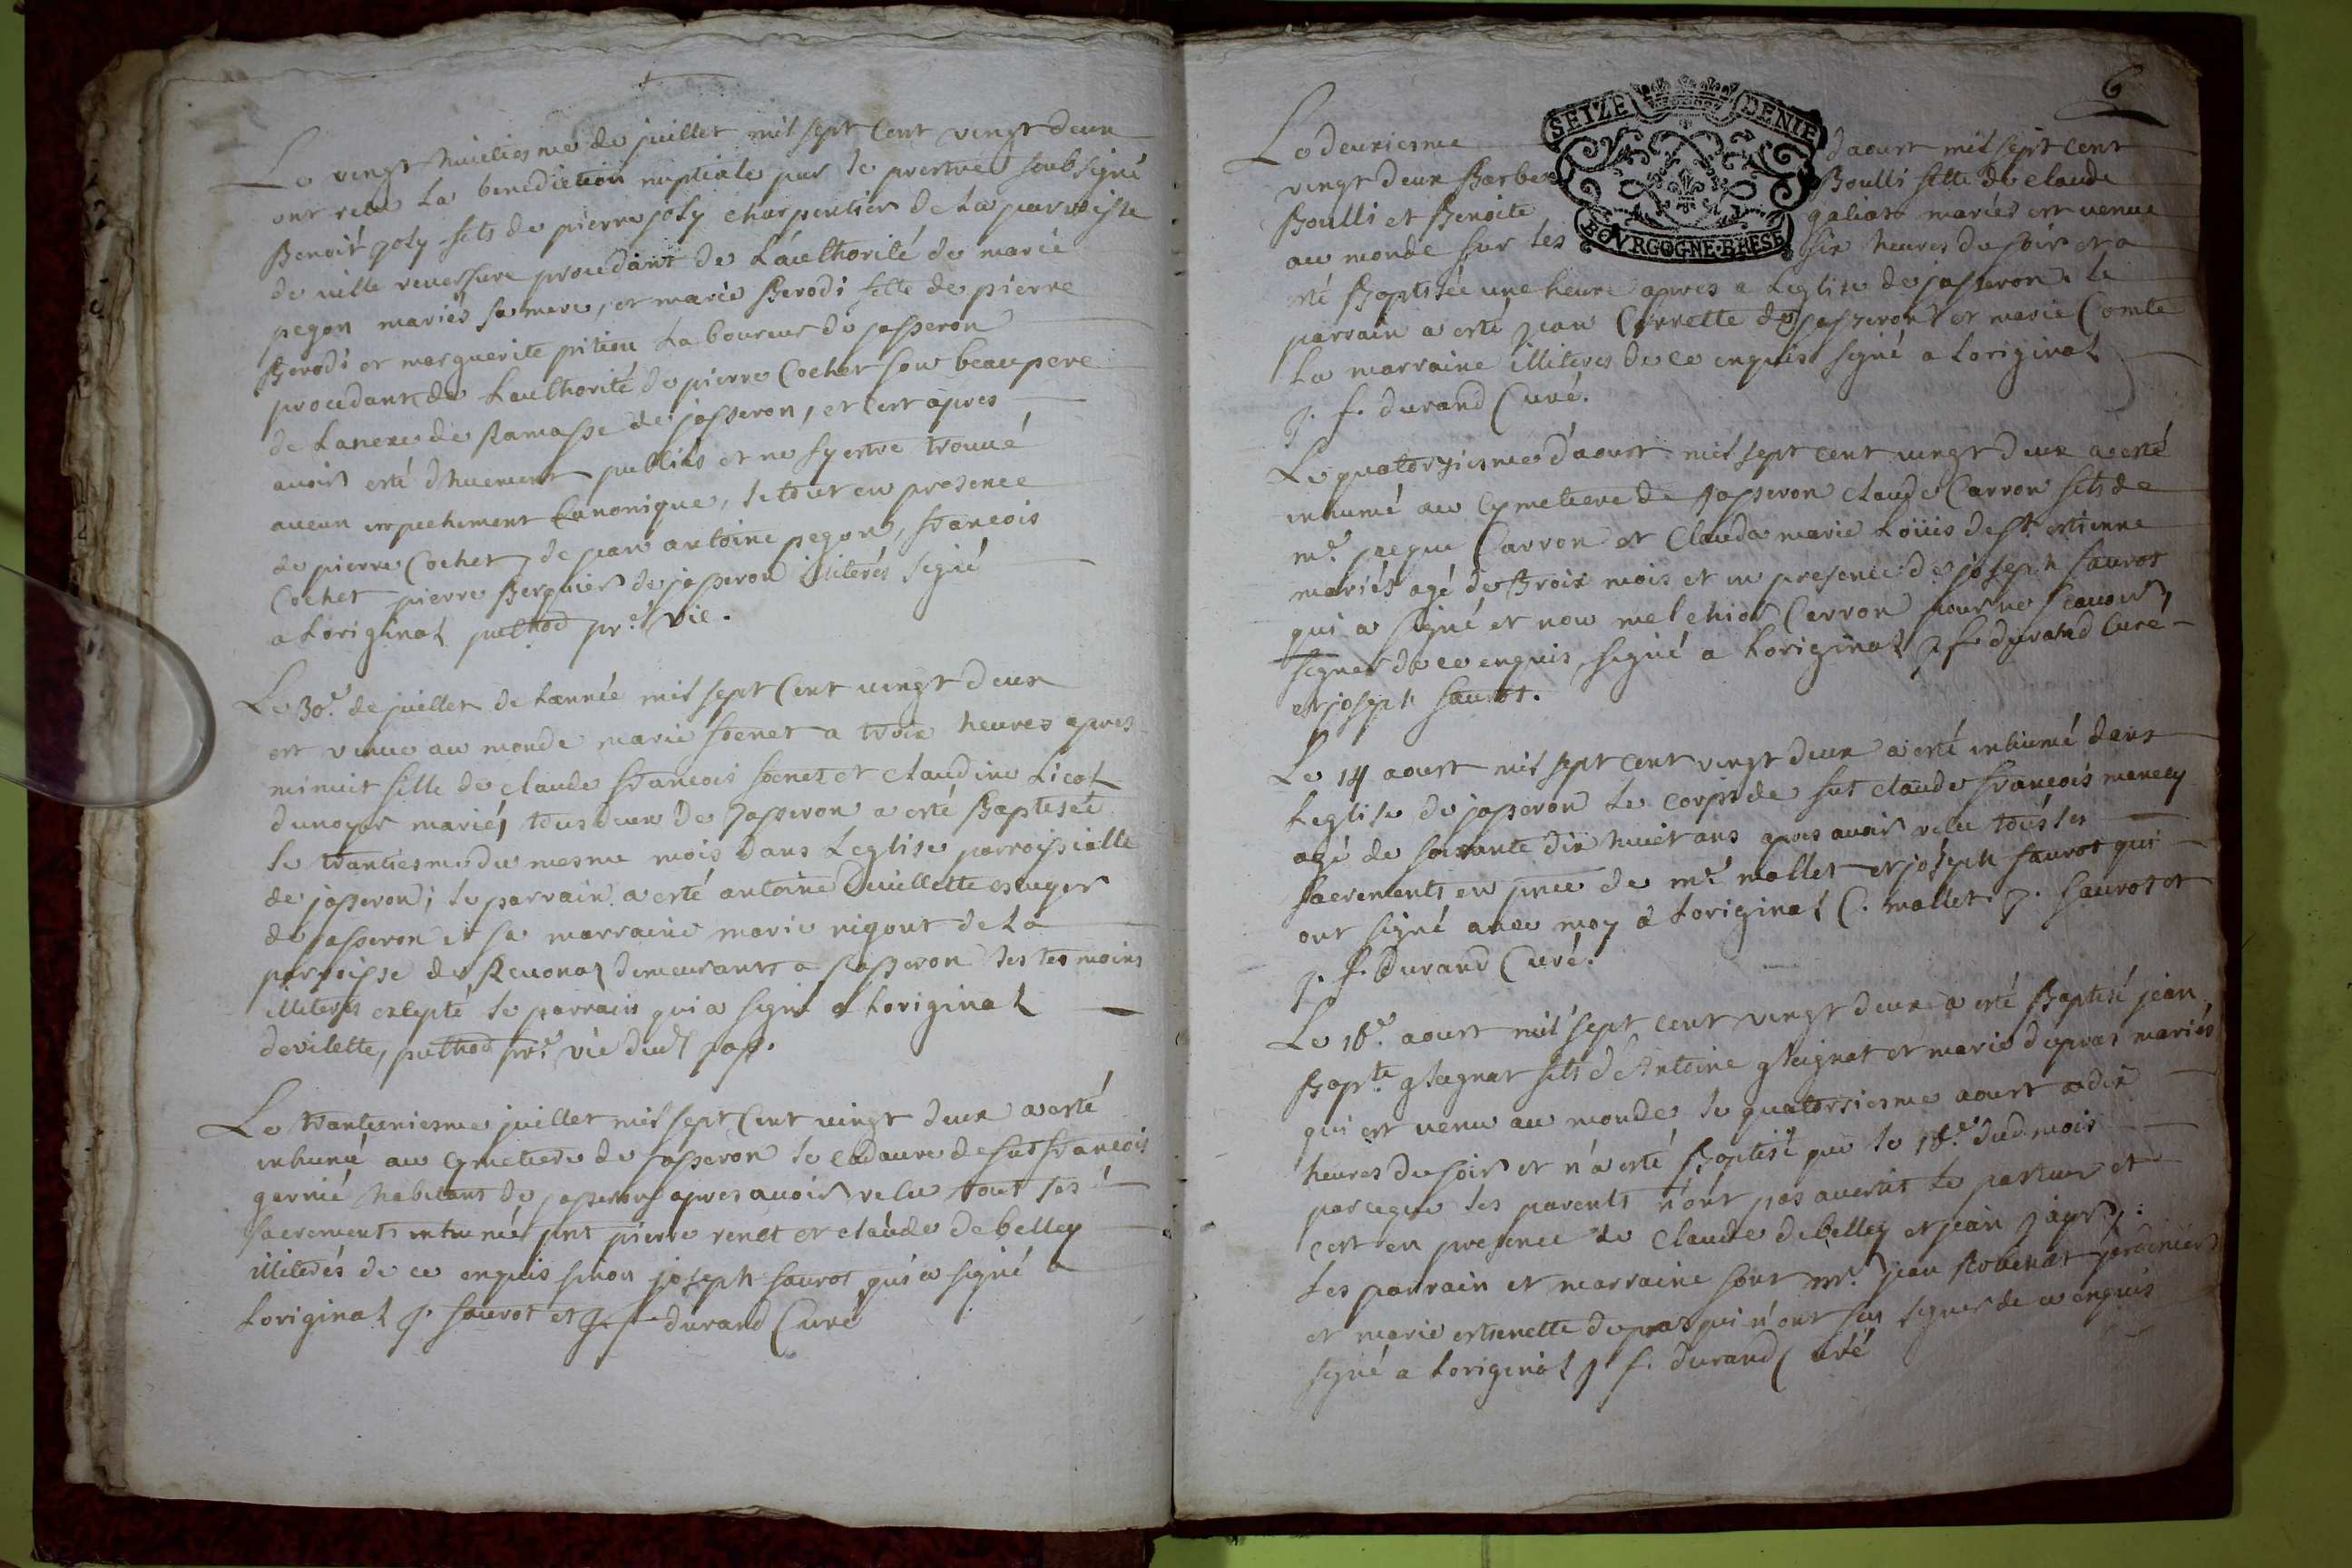 Le vingt huictiesme de juillet mil sept cent vingt deux
ont receu la benediction nuptiale par le prestre soubsigné
Benoit joly fils de pierre joly charpentier de la parroisse
de ville reversure procedant de l'authorité de marie
pegon mariés sa mere, et marie Berodi fille de pierre
Berodi et marguerite pition laboureur de jasseron
procedant de l'authorité de pierre Cochet son beaupere
de lanexe de Ramasse de jasseron, et cest apres
avoir esté dhuement publiés et ne sy estre trouvé
aucun empechement Canonique, le tout en presence
de pierre Cochet, de jean antoine pegon, francois
Cochet pierre Berguier de jasseron illiterés signé
a loriginal puthod pre. vic.
Le 30e. de juillet de lannée mil sept cent vingt deux
est venue au monde marie fenet a trois heures apres
minuit fille de claude francois fenet et claudine Licol
dunoyer mariés tous deux de Jasseron a esté Baptisée
le trantiesme du mesme mois dans leglise parroissialle
de jasseron; le parrain a esté antoine Duillette escuyer
de jasseron et sa marraine marie nigout de la
parroisse de Revonas demeurante a jasseron les tesmoins
illiterés excepté le parrain qui a signé a loriginal
devilette, puthod pre. vic dud jass.
Le trantuniesme juillet mil sept cent vingt deux a esté
inhumé au cymetiere de jasseron le cadavre de fut francois
gernié habitant de jasseron apres avoir receu tout les
sacrements inhumé pnt pierre renet et claude debelley
illiterés de ce enquis sinon joseph saurot qui a signé a
loriginal J. saurot et J. f. durand Curé
6
SEIZE DENIE
BOVRGOGNE·BRESE
Le deuxiesme daoust mil sept cent
vingt deux Barbe Boulli fille de claude
Boulli et Benoite galias mariés est venue
au monde sur les six heures du soir et a
eté Baptisée une heure apres a leglise de jasseron. le
parrain a esté jean Corrette de jasseron et marie Comte
la marraine illiteres de ce enquis signé a loriginal
j. f. durand Curé.
Le quatorziesme d'aoust mil sept cent vingt deux a esté
inhumé au cymetiere de Jasseron claude Carron fils de
me. jacque Carron et Clauda marie Loüis de st. estienne
mariés agé de trois mois et en presence de joseph saurot
qui a signé et non melchior Carron pour ne scavoir
signer de ce enquis, signé a loriginal J. f. durand Curé
et joseph saurot.
Le 14 aoust mil sept cent vingt deux a esté inhumé dans
leglise de jasseron le corps de fut claude francois mency
agé de soixante dix huict ans apres avoir receu tous les
sacrements en pnce de mr. mallet et joseph saurot qui
ont signé avec moy a loriginal C. mallet. J. saurot et
j. f. durand Curé.
Le 16e. aoust mil sept cent vingt deux a esté Baptisé jean
Bapte. gleignat fils de Antoine gleignat et marie dupras mariés
qui est venu au monde le quatorziesme aoust a dix
heures du soir et n'a esté Baptisé que le 16e. dud. mois
parceque les parents n'ont pas avertit le pasteur et
cest en presence de Claude debelley et jean
les parrain et marraine sont mr. jean Robenat jardinier
et marie estienette dupras qui n'ont seu signer de ce enquis
signé a loriginal j f. durand Curé